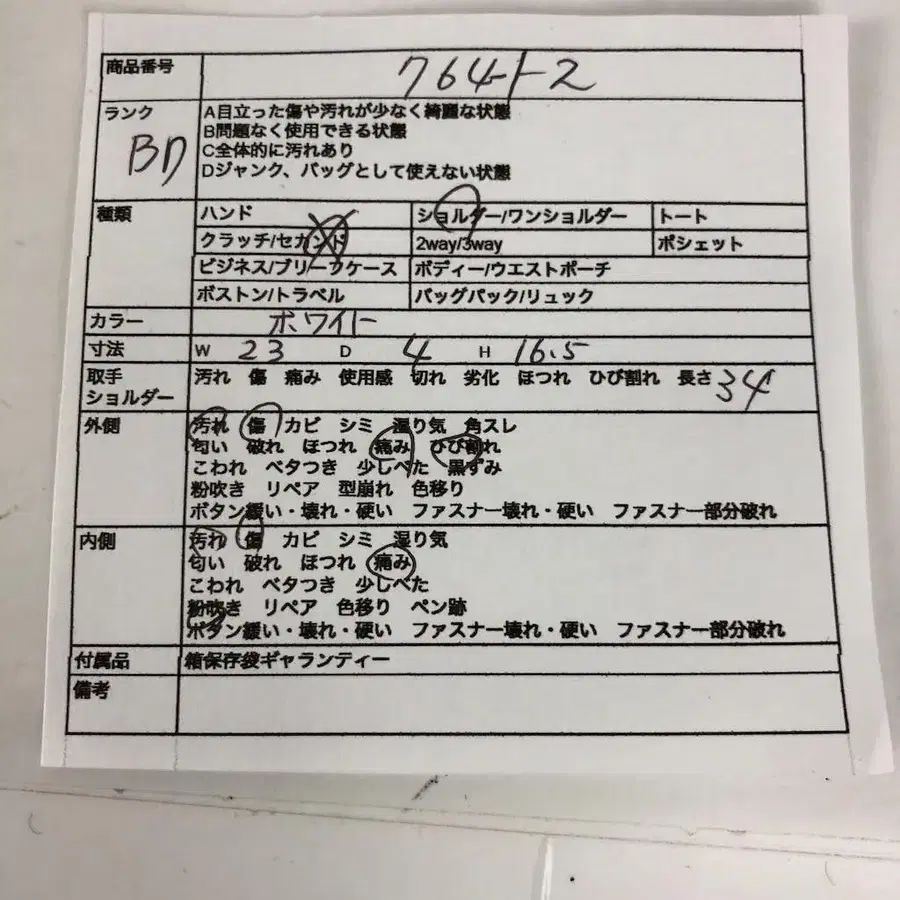 商品番号 764ト2
ランク A目立った傷や汚れが少なく綺麗な状態
B問題なく使用できる状態
BD C全体的に汚れあり
Dジャンク、バッグとして使えない状態
種類 ハンド ショルダー/ワンショルダー トート
クラッチ/セカンド 2way/3way ポシェット
ビジネス/ブリーフケース ボディー/ウエストポーチ
ボストン/トラベル バッグパック/リュック
カラー ホワイト
寸法 W 23 D 4 H 16.5
取手 汚れ 傷 痛み 使用感 切れ 劣化 ほつれ ひび割れ 長さ 34
ショルダー
外側 汚れ 傷 カビ シミ 湿り気 角スレ
匂い 破れ ほつれ 痛み ひび割れ
こわれ ベタつき 少しべた 黒ずみ
粉吹き リペア 型崩れ 色移り
ボタン緩い・壊れ・硬い ファスナー壊れ・硬い ファスナー部分破れ
内側 汚れ 傷 カビ シミ 湿り気
匂い 破れ ほつれ 痛み
こわれ ベタつき 少しべた
粉吹き リペア 色移り ペン跡
ボタン緩い・壊れ・硬い ファスナー壊れ・硬い ファスナー部分破れ
付属品 箱保存袋ギャランティー
備考